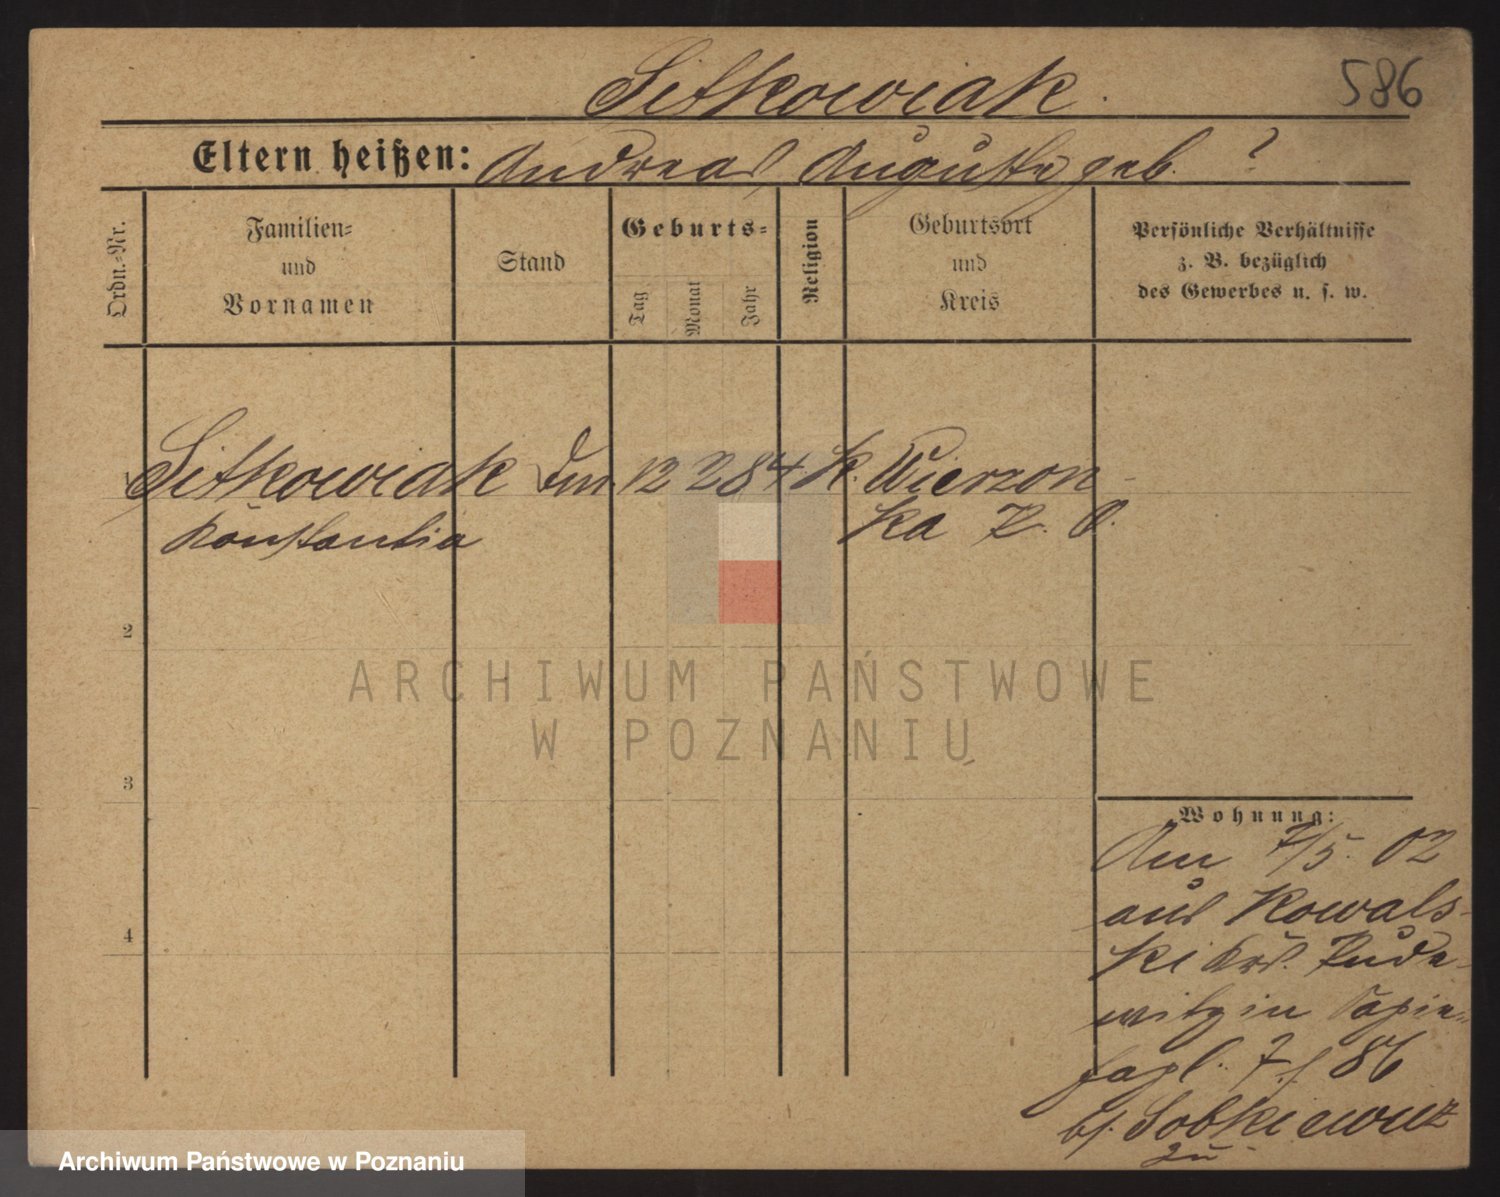 Sitkowiak
586
Eltern heißen: Andreas, Auguste geb. ?
Ordn.-Nr.
Familien-
und
Vornamen
Stand
Geburts-
Tag
Monat
Jahr
Religion
Geburtsort
und
Kreis
Persönliche Verhältnisse
z. B. bezüglich
des Gewerbes u. s. w.
1 Sitkowiak 12 2 84 k. Wierzon-
Konstantia ka P. O.
2
3
4
ARCHIWUM PAŃSTWOWE
W POZNANIU
Wohnung:
Am 7/5. 02
aus Kowals-
ki Krs. Pude-
witz in
7. f 86
bf. Sobkiewicz
zu
Archiwum Państwowe w Poznaniu